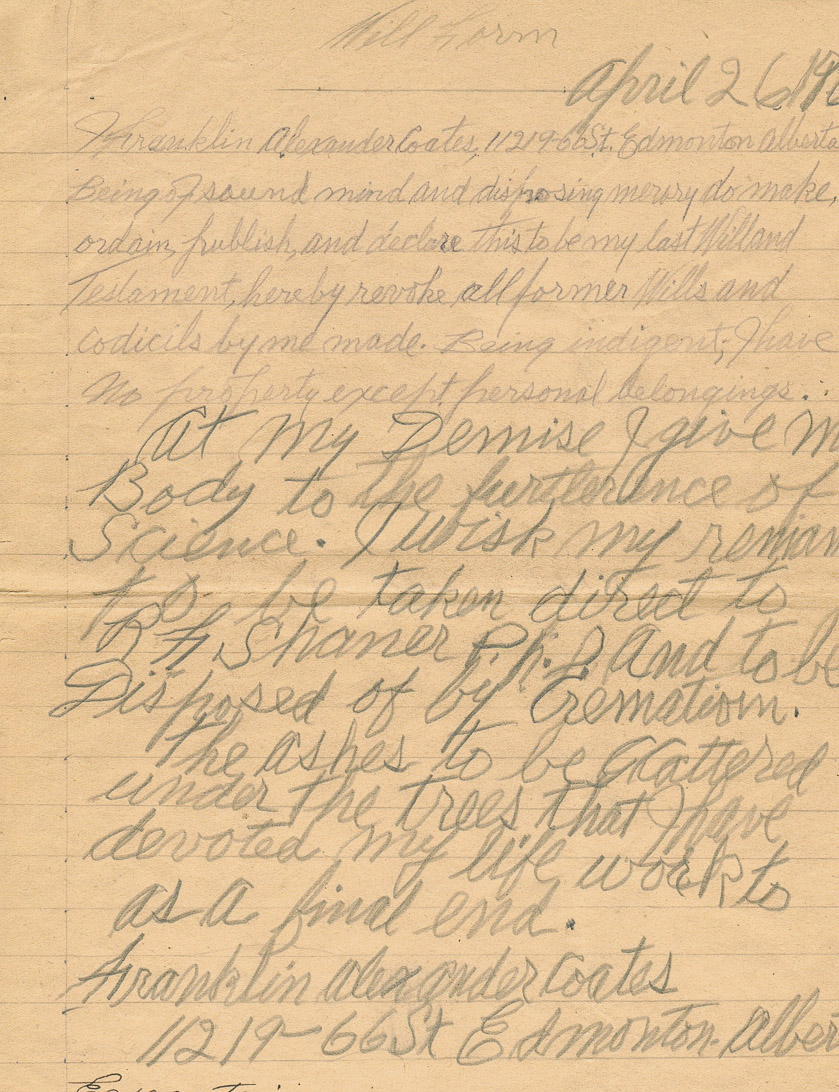 Will Form
April 26 19
Franklin Alexander Coates, 11219-66St. Edmonton Alberta
Being of sound mind and disposing memory do make,
ordain, publish, and declare this to be my last Will and
Testament, hereby revoke all former Wills and
Codicils by me made. Being indigent; I have
No property except personal belongings.
At my Demise I give m
Body to the furtherence of
Science. I wish my remain
to be taken direct to
R F Shaner Ph.D And to be
Disposed of by Crematioin.
The ashes to be Scattered
under the trees that I have
devoted my life work to
as a final end.
Franklin Alexander Coates
11219-66St Edmonton. Alber